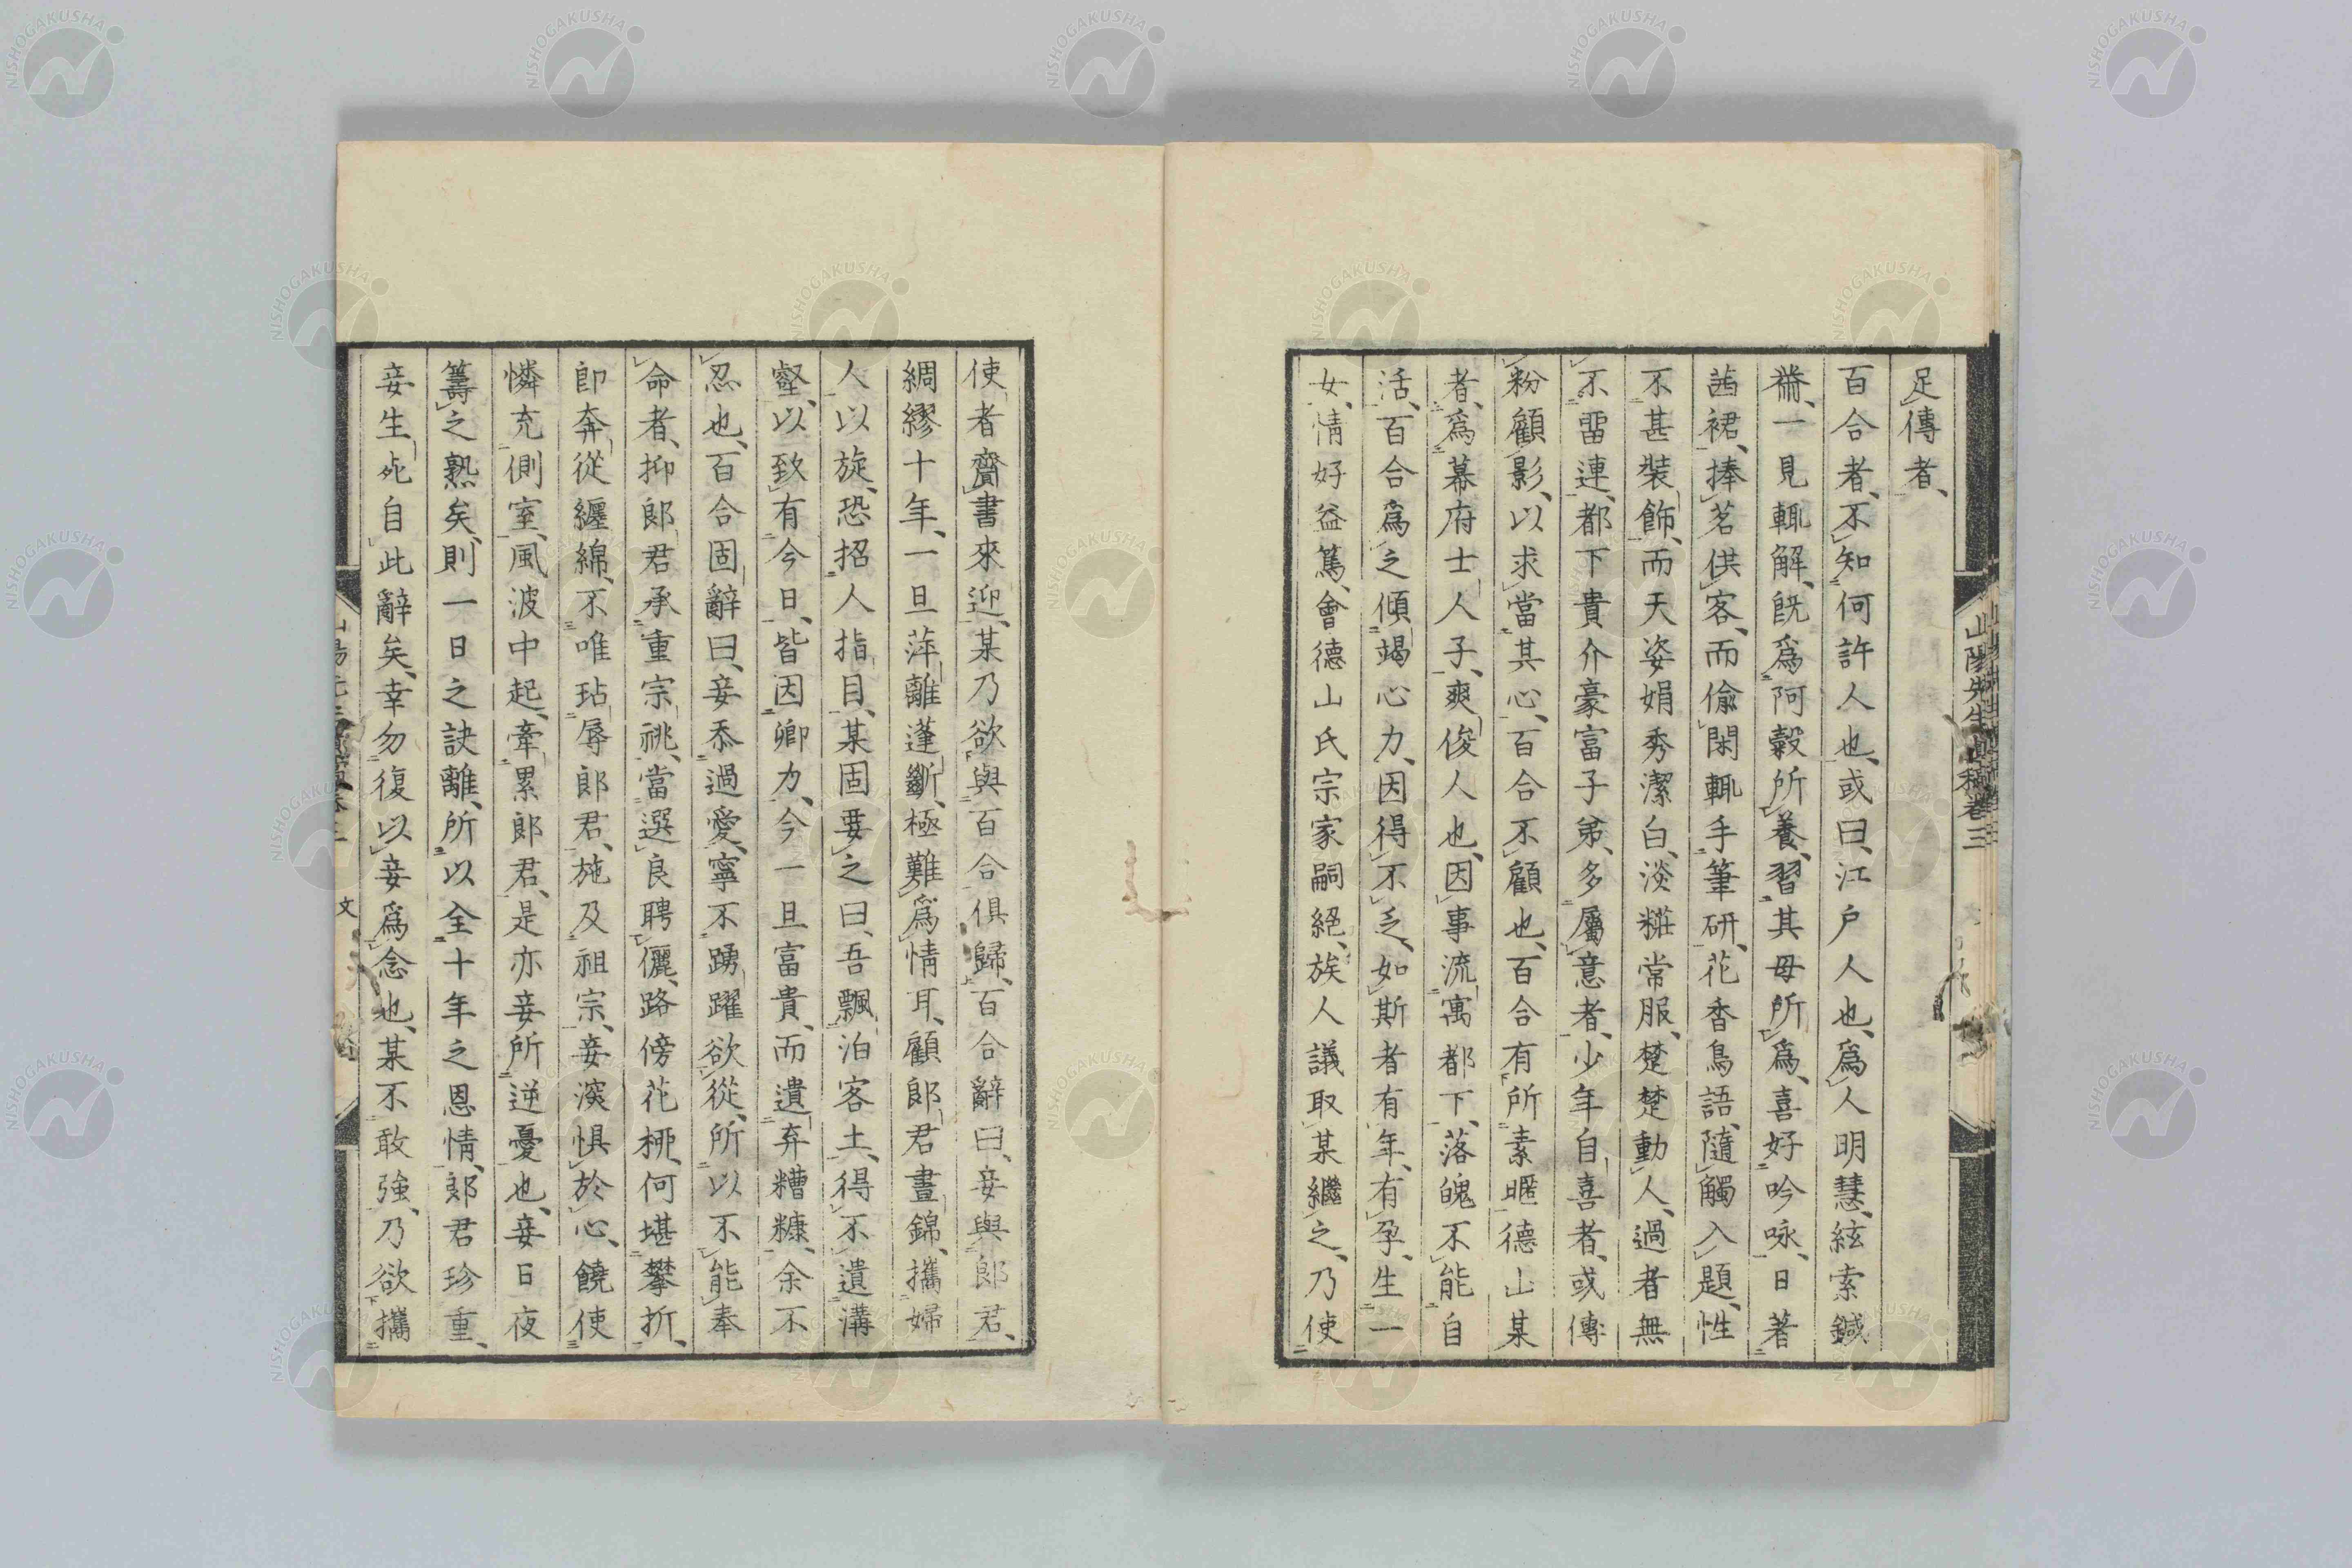 足傳者、
百合者、不知何許人也、或曰、江戸人也、爲人明慧、絃索鍼
黹、一見輒解、既爲阿穀所養、習其母所爲、喜好吟咏、日著
茜裙、捧茗供客、而偸閑輒手筆研、花香鳥語、隨觸入題、性
不甚裝飾、而天姿娟秀潔白、淡糚常服、楚楚動人、過者無
不畱連、都下貴介豪富子弟、多屬意者、少年自喜者、或傅
粉顧影、以求當其心、百合不顧也、百合有所素暱德山某
者、爲幕府士人子、爽俊人也、因事流寓都下、落魄不能自
活、百合爲之傾竭心力、因得不乏、如斯者有年、有孕、生一
女、情好益篤、會德山氏宗家嗣絕、族人議取某繼之、乃使
使者齎書來迎、某乃欲與百合俱歸、百合辭曰、妾與郞君、
綢繆十年、一旦萍離蓬斷、極難爲情耳、顧郞君晝錦、攜婦
人以旋、恐招人指目、某固要之曰、吾飄泊客土、得不遺溝
壑、以致有今日、皆因卿力、今一旦富貴、而遺弃糟糠、余不
忍也、百合固辭曰、妾忝過愛、寧不踴躍欲從、所以不能奉
命者、抑郞君承重宗祧、當選良聘儷、路傍花栁、何堪攀折、
卽奔從纏綿、不唯玷辱郞君、施及祖宗、妾㴱惧於心、饒使
憐充側室、風波中起、牽累郞君、是亦妾所逆憂也、妾日夜
籌之熟矣、則一日之訣離、所以全十年之恩情、郞君珍重、
妾生死自此辭矣、幸勿復以妾爲念也、某不敢強、乃欲攜
山陽先生眞稿卷三
文
NISHOGAKUSHA